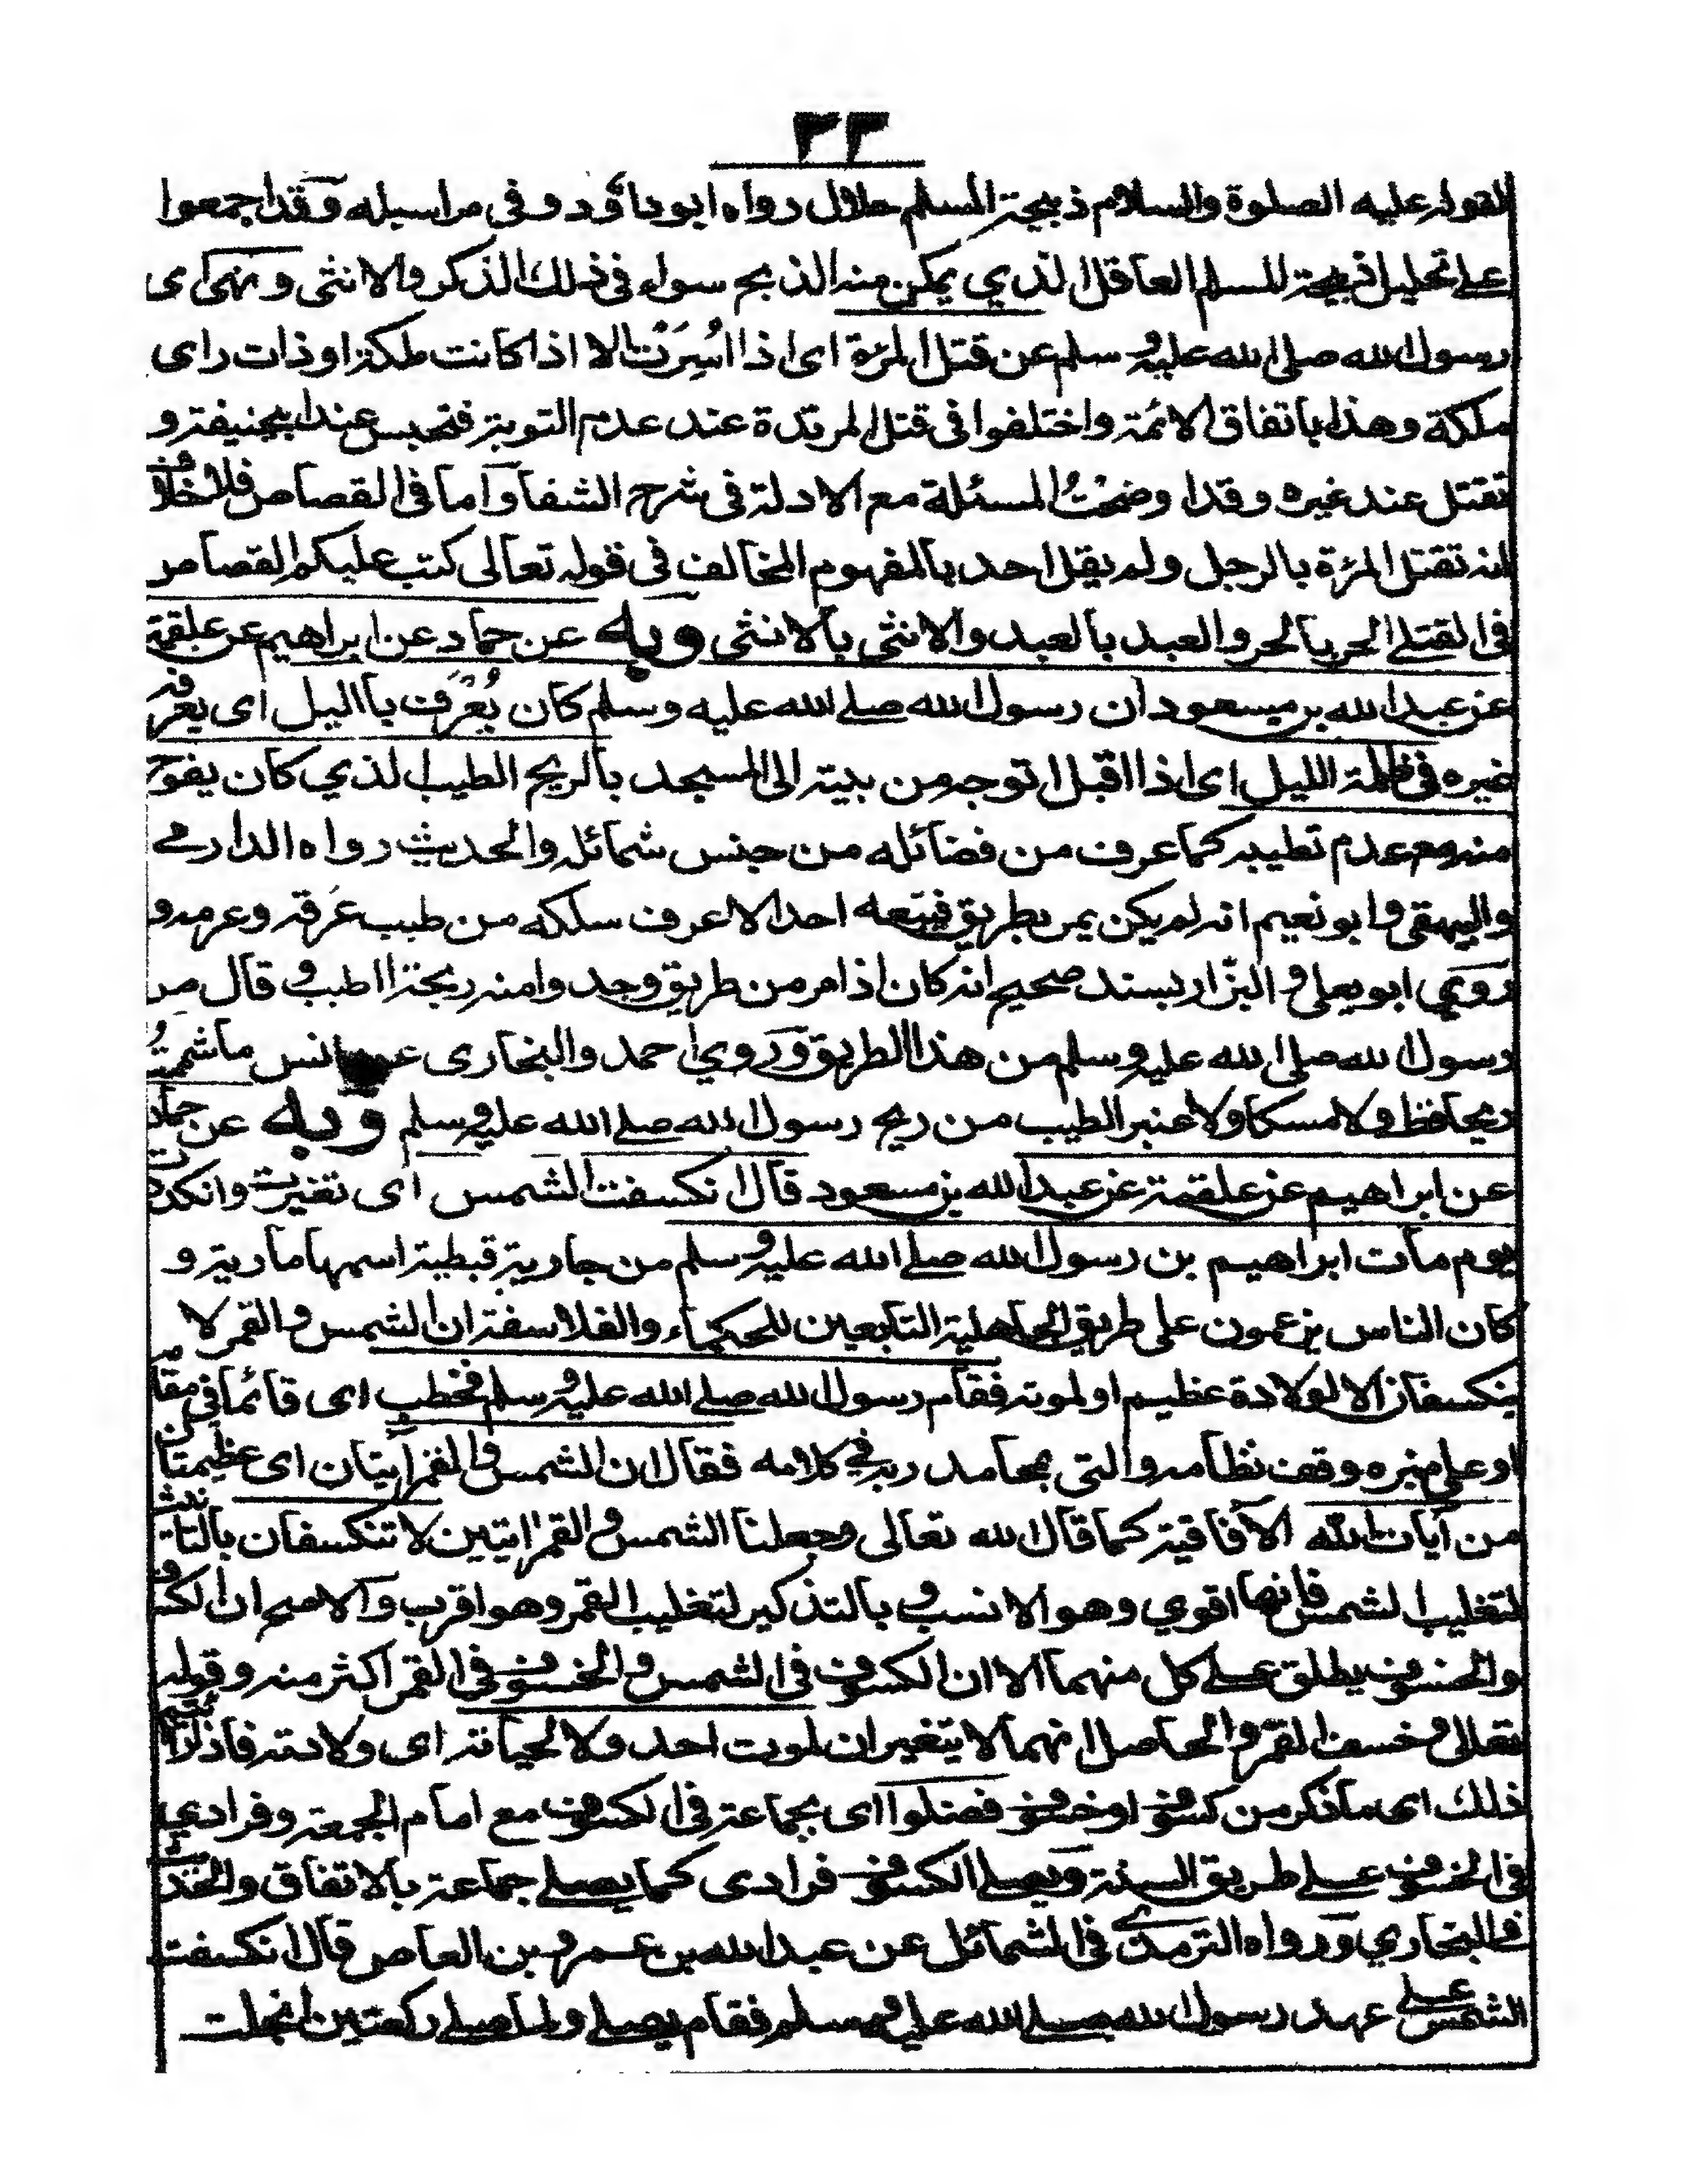 ٣٣
لقوله عليه الصلوة والسلام ذبيحة المسلم حلال رواه ابوداؤد وفى مراسيله وقد اجمعوا
على تحليل ذبيحة المسلم العاقل الذي يمكن منه الذبح سواء فى ذلك الذكر والانثى ونهى اى
رسول الله صلى الله عليه وسلم عن قتل المرءة اى اذا اُسِرَتْ الا اذا كانت ملكة او ذات راى
ملكة وهذا باتفاق الائمة واختلفوا فى قتل المرتدة عند عدم التوبة فتحبس عند ابيحنيفة و
تقتل عند غيره وقد اوضحْتُ المسئلة مع الادلة فى شرح الشفا واما فى القصاص فلا خلاف
انه تقتل المرءة بالرجل ولم يقل احد بالمفهوم المخالف فى قوله تعالى كتب عليكم القصاص
فى القتلى الحر بالحر والعبد بالعبد والانثى بالانثى وبه عن حماد عن ابراهيم عن علقمة
عن عبد الله بن مسعود ان رسول الله صلے الله عليه وسلم كان يُعْرَف بااليل اى يعرفه
غيره فى ظلمة الليل اى اذا اقبل او توجه من بيته الى المسجد بالريح الطيب الذي كان يفوح
منه مع عدم تطيبه كما عرف من فضائله من جنس شمائله والحديث رواه الدارمے
والبيهقى وابو نعيم انه لم يكن يمر بطريق فيتبعه احد الا عرف سلكه من طيب عَرَقه وعرفه و
رَوَى ابو يعلى والبزّار بسند صحيح انه كان اذا مر من طريق وجدوا منه ريحة الطيب وقال مر
رسول الله صلى الله عليه وسلم من هذا الطريق وَروي احمد والبخارى عن انس ما شممتُ
ريحا قط ولا مسكا ولا عنبر الطيب من ريح رسول الله صلے الله عليه وسلم وبه عن حماد
عن ابراهيم عن علقمة عن عبد الله بن مسعود قال انكسفت الشمس اى تغيرت وانكدرت
يوم مات ابراهيم بن رسول الله صلے الله عليه وسلم من جارية قبطية اسمها مارية و
كان الناس يزعمون على طريق الجاهلية التابعين للحكماء والفلاسفة ان الشمس والقمر لا
ينكسفان الا لولادة عظيم او لموته فقام رسول الله صلے الله عليه وسلم فخطب اى قائما فى مقامه
او على منبره وقف نظامه والتى بمحامد ربه في كلامه فقال ان الشمس والقمر اٰيتان اى عظيمتان
من آيات الله الآفاقية كما قال الله تعالى وجعلنا الشمس والقمر اٰيتين لا تنكسفان بالتانيث
لتغليب الشمس فانها اقوي وهو الانسب وبالتذكير لتغليب القمر وهو اقرب والاصح ان الكسوف
والخسوف يطلق علے كل منهما الا ان الكسوف فى الشمس والخسوف فى القمر اكثر منه وقوله
تعالى وخسف القمر والحاصل انهما لا يتغيران لموت احد ولا لحياته اى ولادته فاذا رأيتم
ذلك اى ما ذكر من كسوف او خسوف فصلوا اى بجماعة فى الكسوف مع امام الجمعة وفرادي
فى الخسوف علے طريق السنة ويصلے الكسوف فرادى كما يصلے جماعة بالاتفاق والحديث
فى البخاري ورواه الترمذى فى الشمائل عن عبد الله بن عمرو بن العاص قال انكسفت
الشمس علے عهد رسول الله صلے الله عليه وسلم فقام يصلے ولما صلے ركعتين انجلت